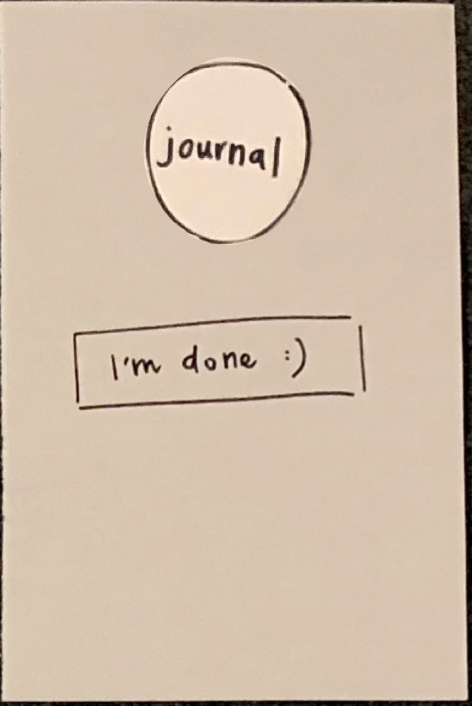 journal
I'm done :)